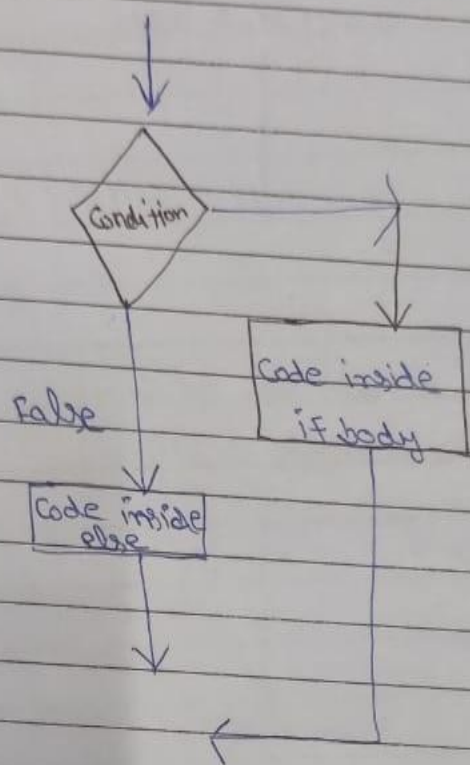 Condition
Code inside
if body
False
Code inside
else